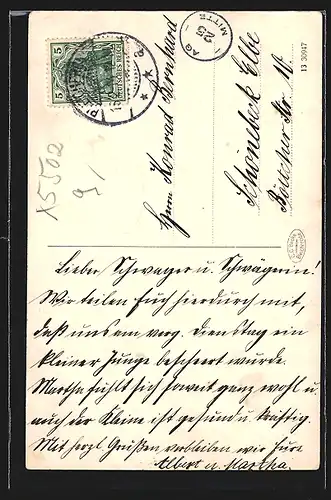 5
DEUTSCHES REICH
MITTE
25
13 30947
Herrn Konrad Bernhard
Schönebeck Elbe
Böttcher Str. 10.
X5502
9/
Lieber Schwager u. Schwägerin!
Wir teilen Euch hierdurch mit,
daß uns am verg. Dienstag ein
kleiner Junge beschert wurde.
Martha fühlt sich soweit ganz wohl u.
auch der Kleine ist gesund u. kräftig.
Mit herzl. Grüßen verbleiben wir Eure
Albert u. Martha.